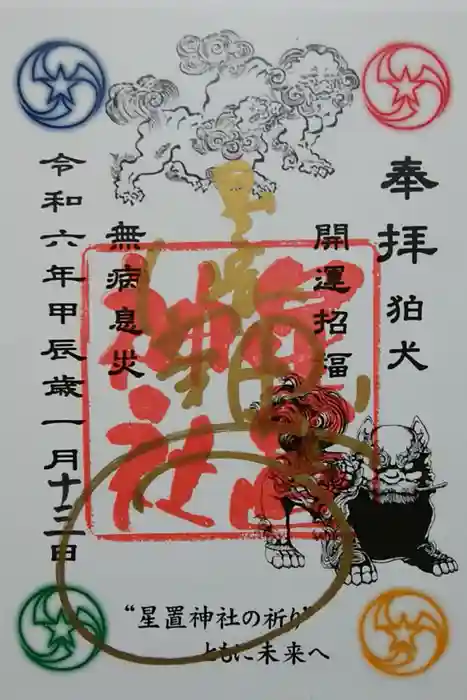 奉拝 狛犬
開運招福
星置神社
無病息災
令和六年甲辰歳一月十三日
“星置神社の祈り”
ともに未来へ